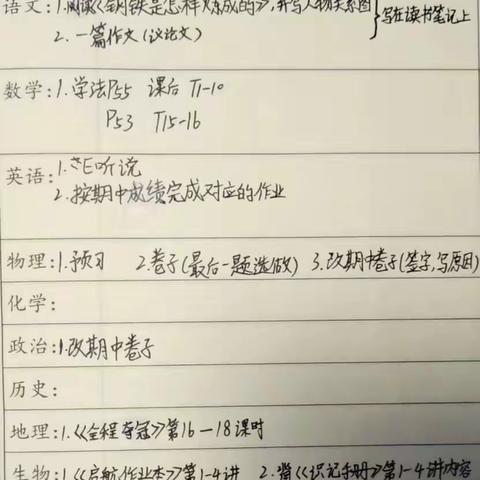 语文:1.阅读《钢铁是怎样炼成的》,并写人物关系图}写在读书笔记上
2.一篇作文(议论文)
数学:1.学法P55 课后 T1-10
P53 T15-16
英语:1.E听说
2.按期中成绩完成对应的作业
物理:1.预习 2.卷子(最后一题选做) 3.改期中卷子(签字,写原因)
化学:
政治:1.改期中卷子
历史:
地理:1.《全程夺冠》第16—18课时
生物:1.《启航作业本》第1-4讲 2.背《识记手册》第1-4讲内容